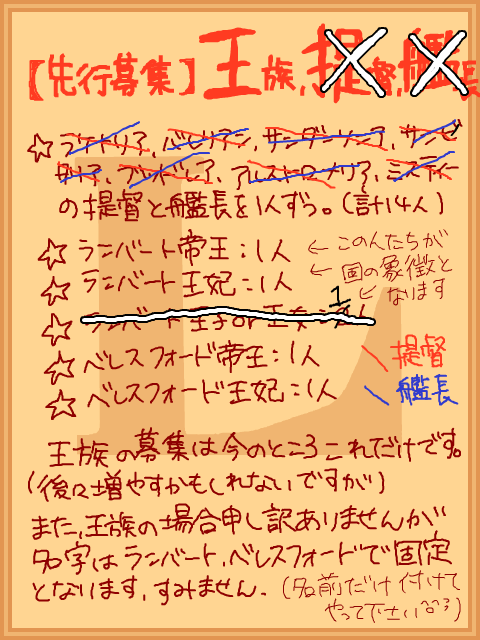 【先行募集】王族,提督,艦長
☆ライトリア,バレリアン,サンダーソニア,サンビ
タリア,ブッドレア,アルストロメリア,ミスティー
の提督と艦長を1人ずつ。(計14人)
☆ランバート帝王:1人 ← この人たちが
☆ランバート王妃:1人 ← 国の象徴と
☆ランバート王子or王女:1人 ← なります
☆ベレスフォード帝王:1人 \提督
☆ベレスフォード王妃:1人 \艦長
王族の募集は今のところこれだけです。
(後々増やすかもしれないですが)
また,王族の場合申し訳ありませんが
名字はランバート,ベレスフォードで固定
となります,すみません.(名前だけ付けて
やって下さい